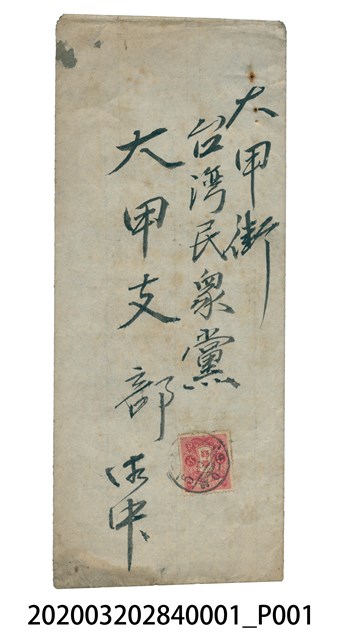 大甲街
台湾民衆黨
大甲支部御中
202003202840001_P001